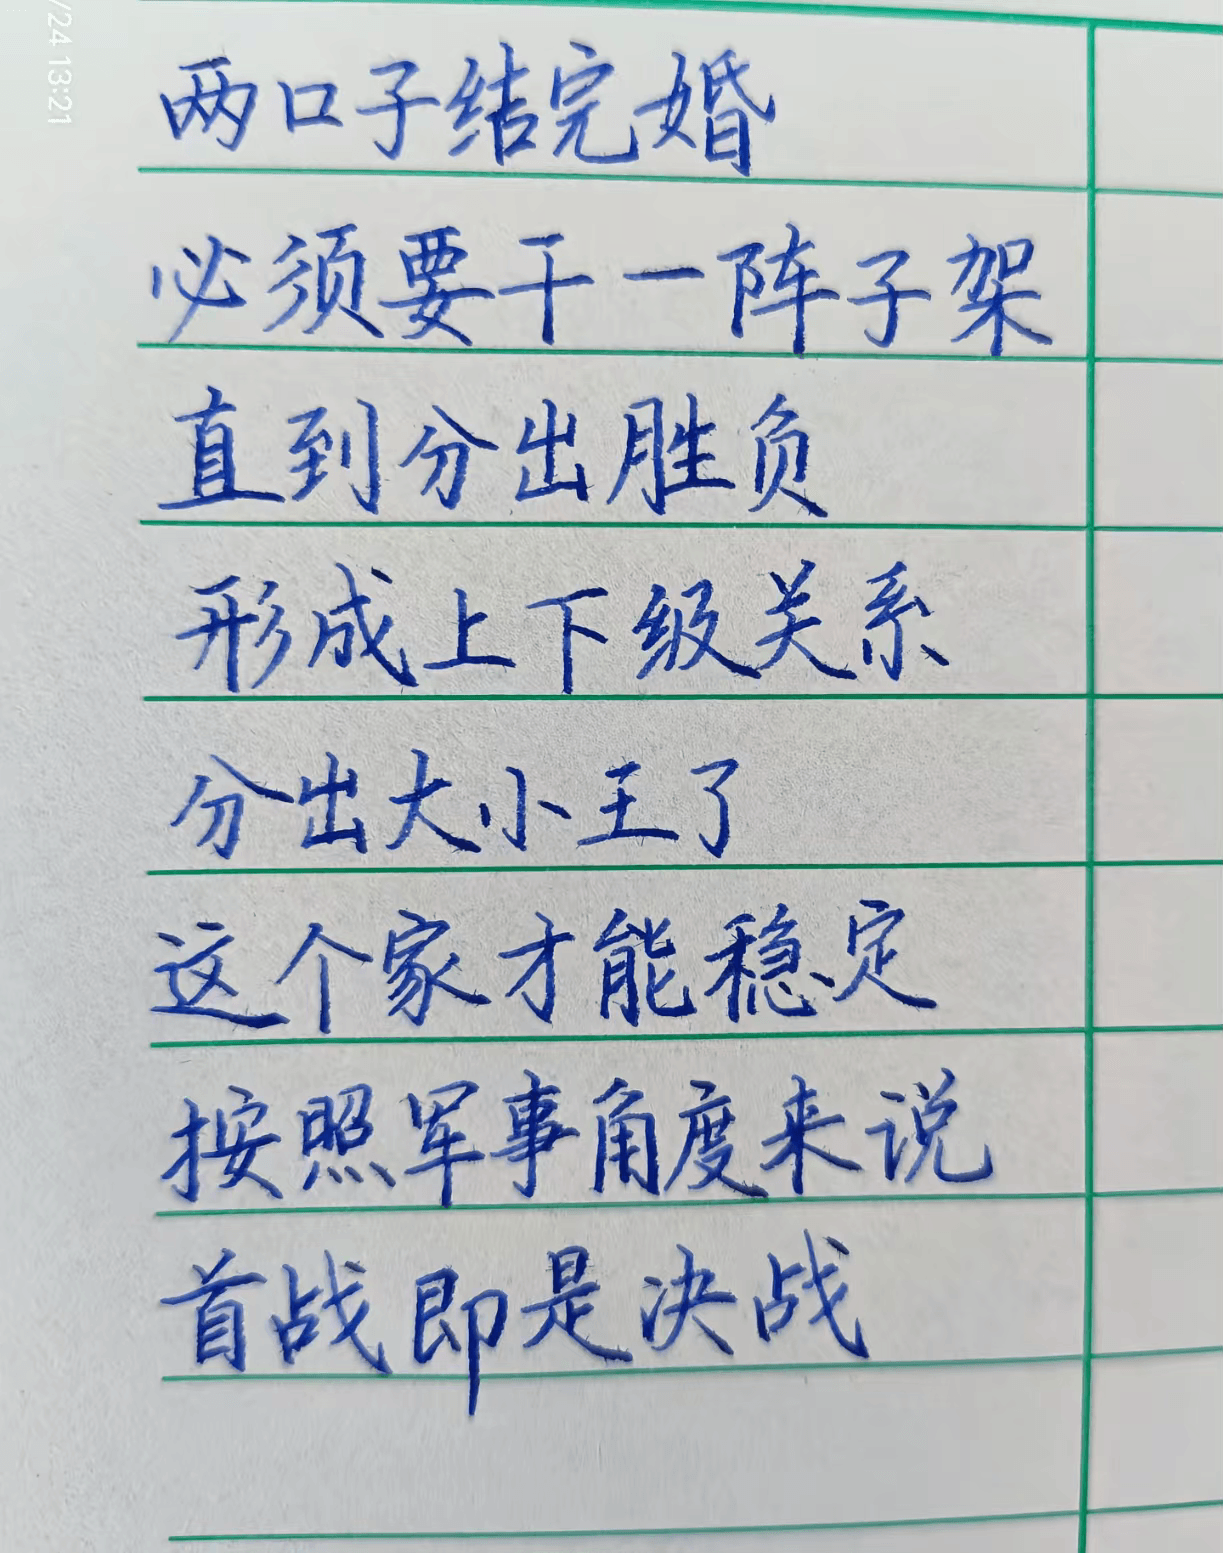 /24 13:21
两口子结完婚
必须要干一阵子架
直到分出胜负
形成上下级关系
分出大小王了
这个家才能稳定
按照军事角度来说
首战即是决战